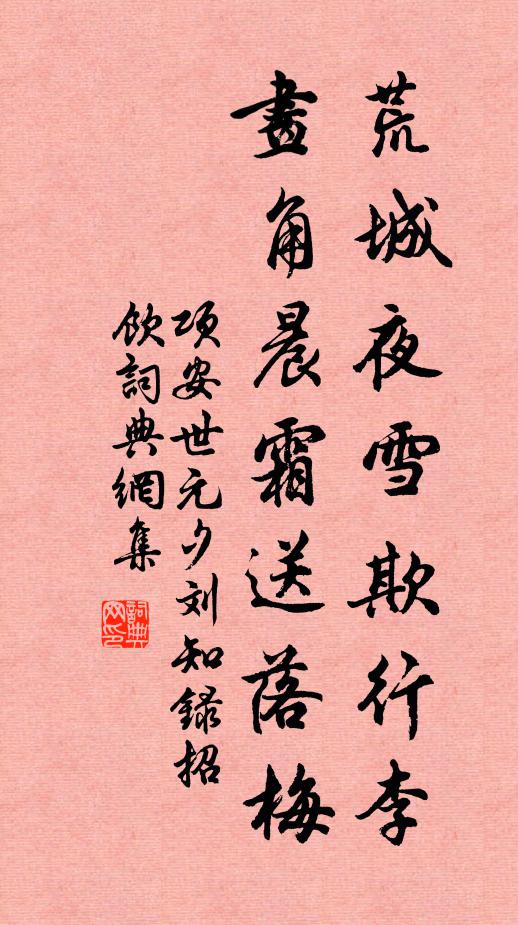 荒城夜雪欺行李
畫角晨霜送落梅
项安世元夕刘知錄招
飲詞典網集
詞典网印